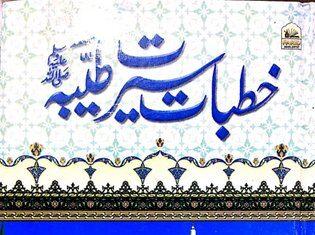 خطبات سیرت طیّبہ ﷺ